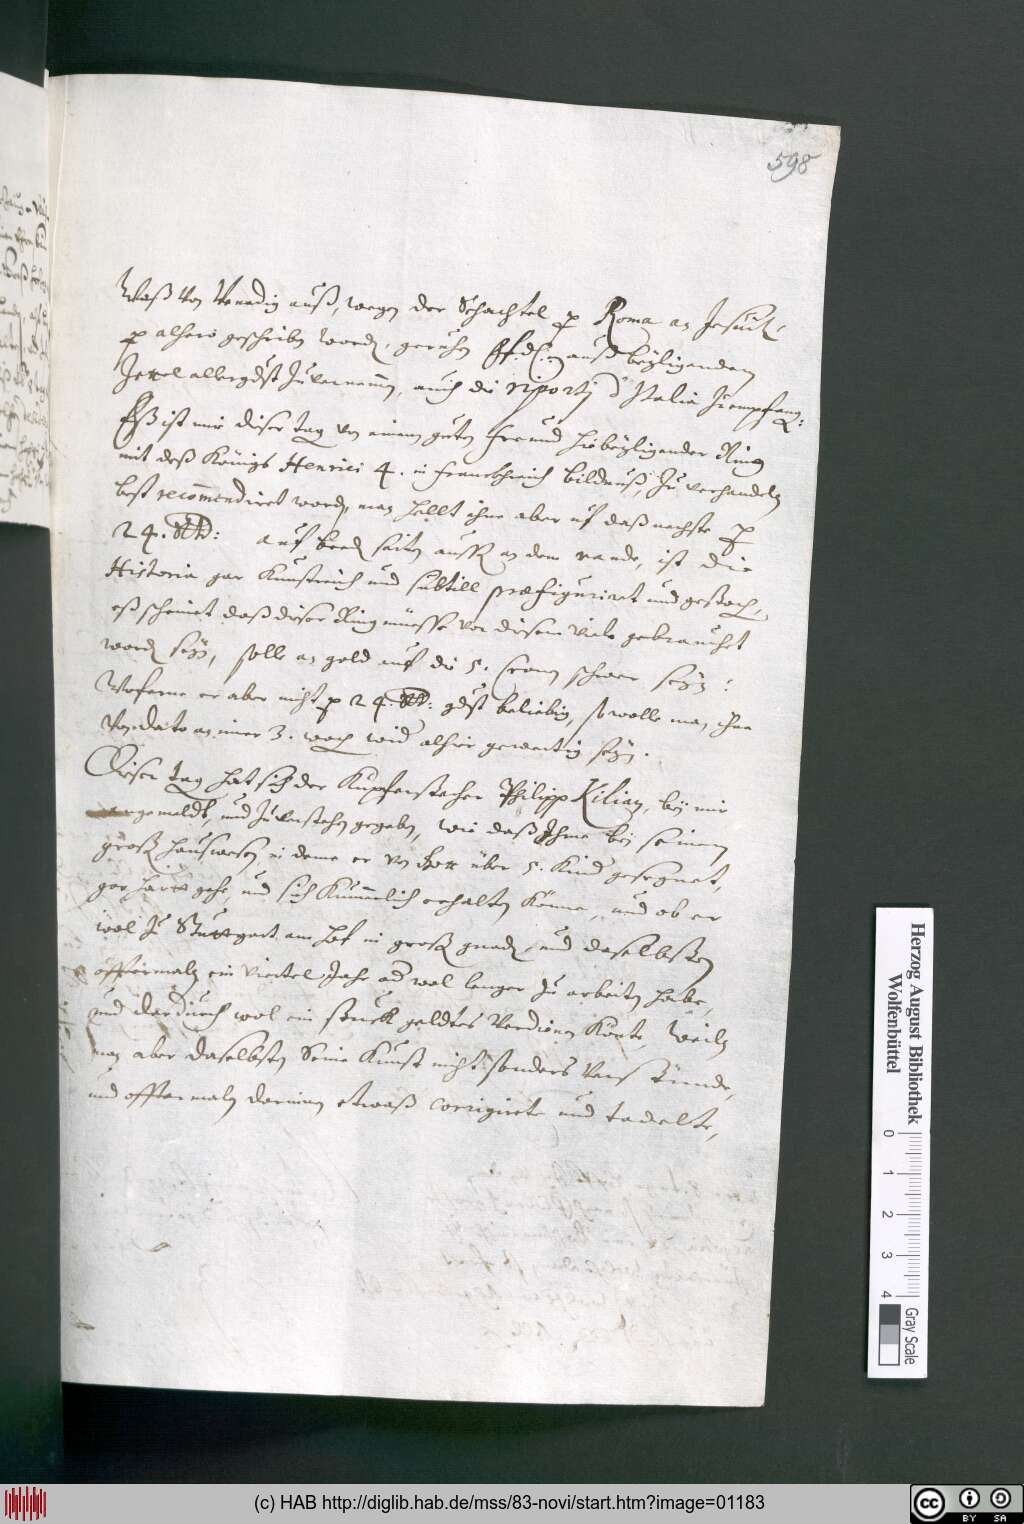 598
Waß Von Venedig auß, wegen der Schachtel p Roma an Jesuit:
p alhero geschriben worden, geruhen auß beyligendem
Zettel allergdst zu vernemen, auch die riporti d'Italia zu empfang:
Eß ist mir diser tag von einem guten freund hiebeyligender Ring
mit deß Königs Henrici 4. in franckhreich bildnuß, zu verhandeln
best recommendiret worden, man hallt ihne aber uf daß nachste p
24. Rth: auf beeden seiten aussen an dem rande, ist die
Historia gar Kunstreich und subtill præfiguriert und gestochen,
eß scheinet daß diser Ring müesse vor disem viel gebraucht
worden seyn, solle an gold auf die 5. Cronen schwer seyn:
Woferne er aber nicht p 24. Rth: gdst beliebig, so wolle man ihne
Von dato an inner 3. wochen wider alhier gewertig seyn.
Diser tag hat sich der Kupferstecher Philipp Kilian, bey mir
angemeldt, und zuverstehen gegeben, wie daß Ihme bey seinem
großen hauswesen, in deme er von Gott über 5. Kinder gesegnet,
gar hart gehe, und sich Kümmerlich erhalten Könne, und ob er
wol zu Stuttgart am hof in großen gnaden, und daselbsten
öffermaln ein viertel Jahr oder wol lenger zu arbeiten habe,
und dardurch wol ein stuck geldtes Verdienen Könte, Weiln
man aber daselbsten Seine Kunst nicht sonders Verstünde,
und offtermaln darinnen etwaß corrigirte und tadelte,
Herzog August Bibliothek
Wolfenbüttel
0 1 2 3 4
Gray Scale
(c) HAB http://diglib.hab.de/mss/83-novi/start.htm?image=01183
cc BY SA